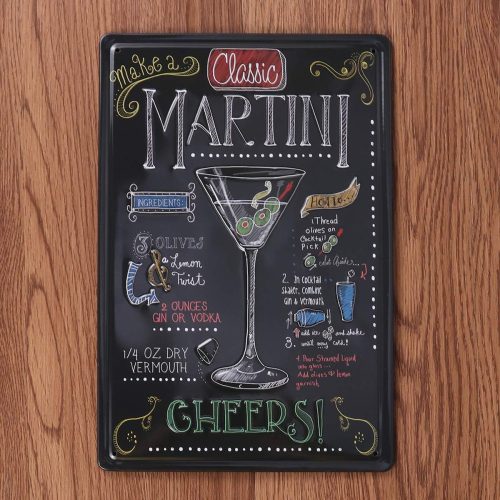 Make a
Classic
MARTINI
INGREDIENTS:
3 OLIVES
a Lemon
Twist
2 OUNCES
GIN OR VODKA
1/4 OZ DRY
VERMOUTH
How to...
1 Thread
olives on
Cocktail
Pick
set Aside..
2. In Cocktail
Shaker, Combine
Gin & Vermouth
3. add ice and shake
until very cold!!
4. Pour Strained Liquid
into glass...
Add olives & lemon
garnish
CHEERS!